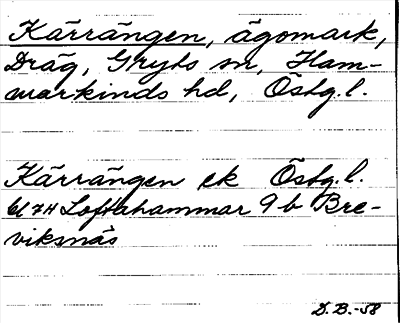 Kärrängen, ägomark,
Dräg, Gryts sn, Ham-
markinds hd, Östg. l.
Kärrängen ek Östg. l.
bl 7H Loftahammar 9 b Bre-
viksnäs
D.B.-58